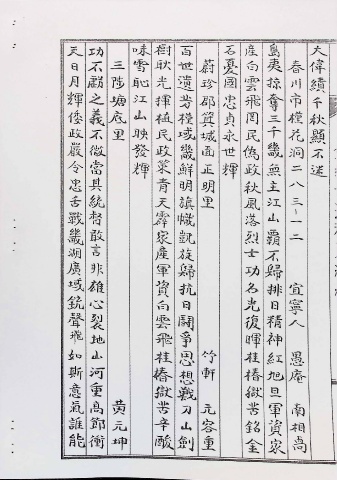 大偉績千秋顯不迷
春川市槿花洞二八三~一二 宜寧人 愚庵 南相卨
島夷掠奪三千畿無主江山霸不歸排日精神紅旭旦軍資家
産白雲飛罔民偽政秋風落烈士功名光復暉桂椿獄苦銘金
石憂國忠貞永世輝
蔚珍郡箕城面正明里 竹軒 元容重
百世遺芳槿域畿鮮明旗幟凱旋歸抗日鬪爭思想戰刀山劍
樹耿光揮植民政策青天霹家産軍資白雲飛桂椿獄苦辛酸
味雪恥江山映發輝
三陟塘底里 黃元坤
功不虧之義不微當具統督敢言非雄心裂地山河重高節衝
天日月輝倭政嚴令忠舌戰畿湖廣域銃聲飛如斯意氣誰能